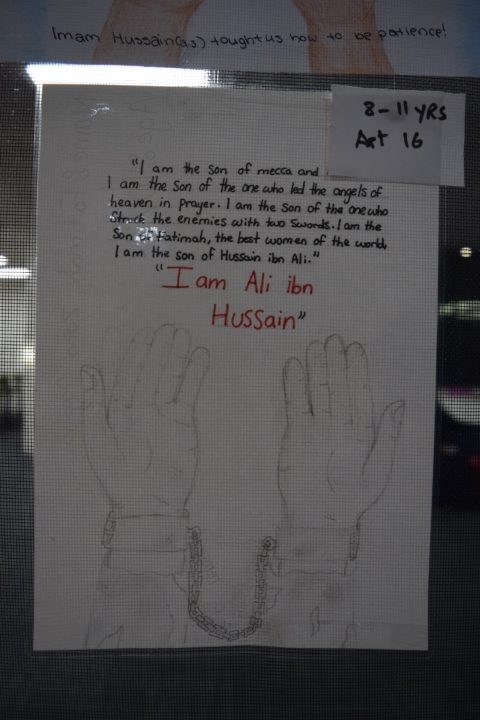 Imam Hussain(as) tought us how to be patience!
8-11 YRS
Art 16
"I am the son of mecca and
I am the son of the one who led the angels of
heaven in prayer. I am the son of the one who
Struck the enemies with two swords. I am the
Son of Fatimah, the best women of the world,
I am the son of Hussain ibn Ali."
"I am Ali ibn
Hussain"